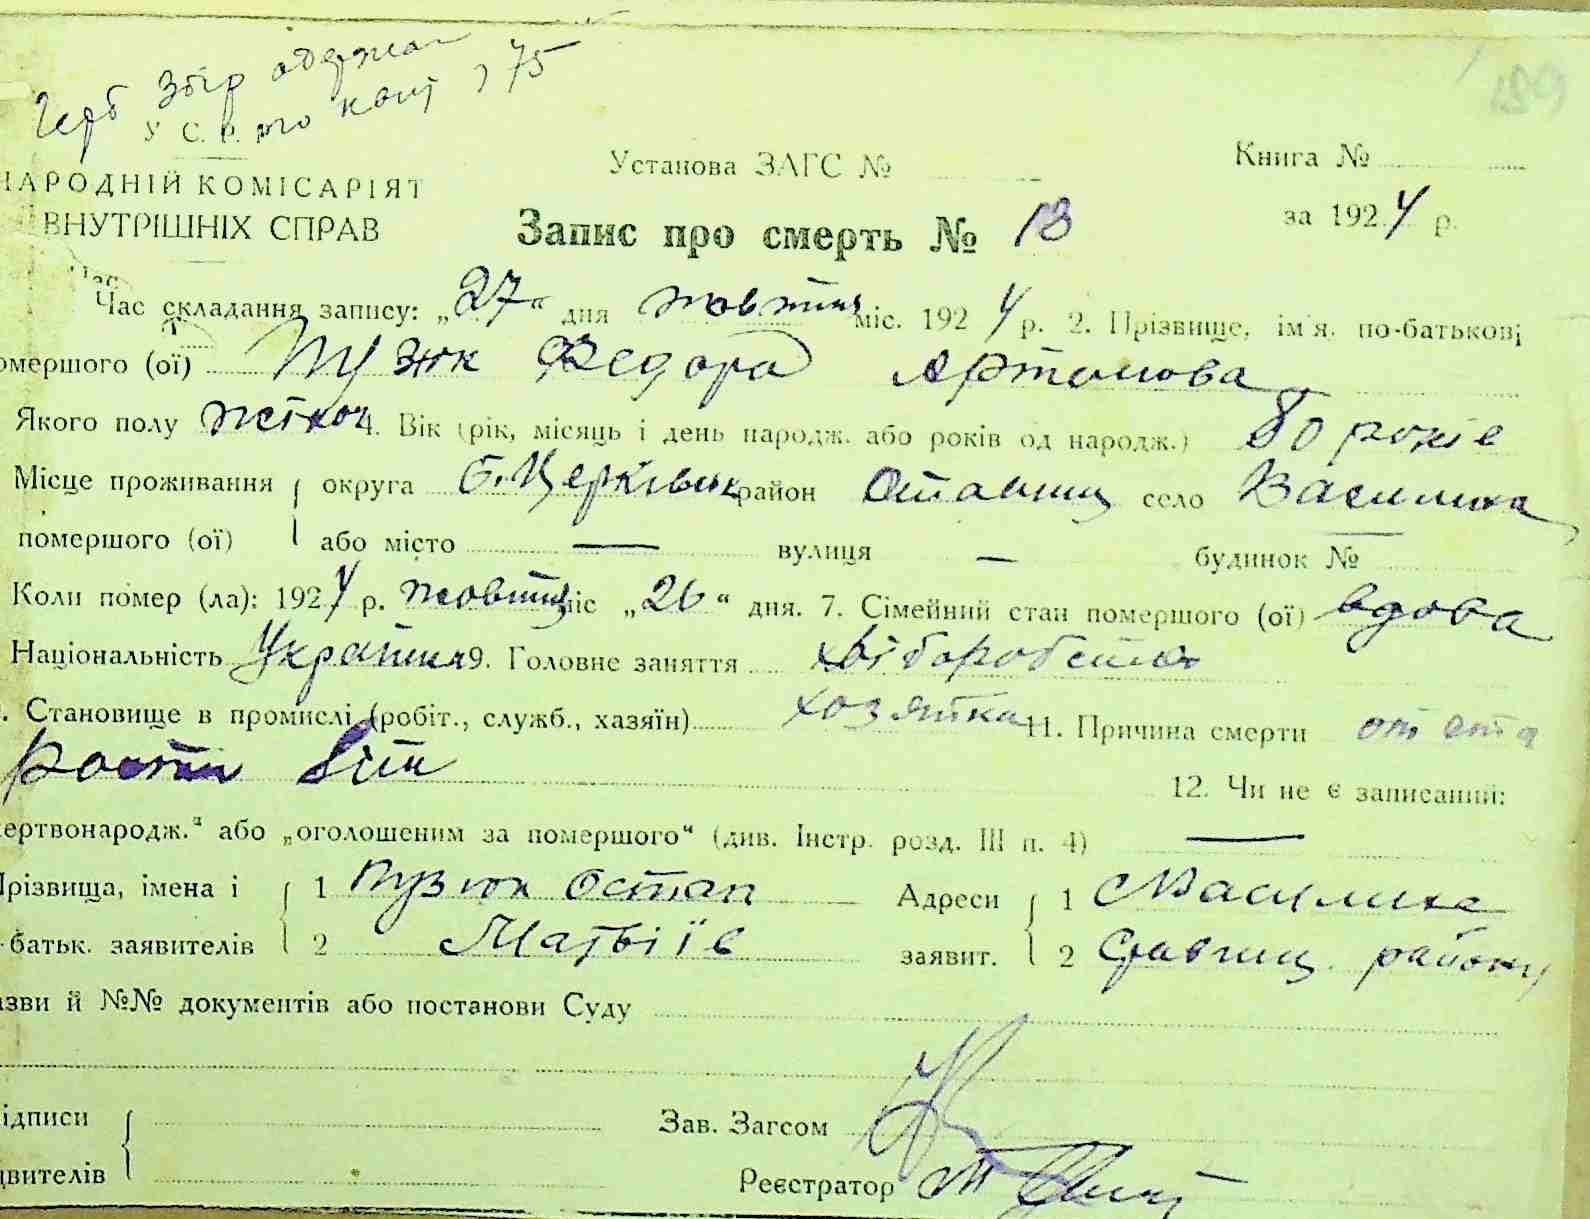 Герб Збір одержан
У. С. Р. коп, 75
189
НАРОДНІЙ КОМІСАРІЯТ
ВНУТРІШНІХ СПРАВ
Установа ЗАГС №
Книга №
Запис про смерть № 13
за 1924 р.
Час складання запису: „27“ дня жовтня міс. 1924 р. 2. Прізвище, ім'я, по-батькові
омершого (ої) Пузюк Федора Артемова
Якого полу жіноч 4. Вік (рік, місяць і день народж. або років од народж.) 80 років
Місце проживання округа Б. Церківськ район Ставищ село Василиха
помершого (ої) або місто — вулиця — будинок №
Коли помер (ла): 1924 р. жовтня міс „26“ дня. 7. Сімейний стан помершого (ої) вдова
Національність Українка 9. Головне заняття хліборобство
. Становище в промислі (робіт., служб., хазяїн) хозяйка 11. Причина смерти от ста
рости літ
12. Чи не є записаний:
ертвонародж.“ або „оголошеним за помершого“ (див. Інстр. розд. III п. 4) —
Прізвища, імена і 1 Пузюк Остап Адреси 1 с Василиха
-батьк. заявителів 2 Матвіїв заявит. 2 Ставищ. району
азви й №№ документів або постанови Суду
ідписи
Зав. Загсом
явителів
Реєстратор